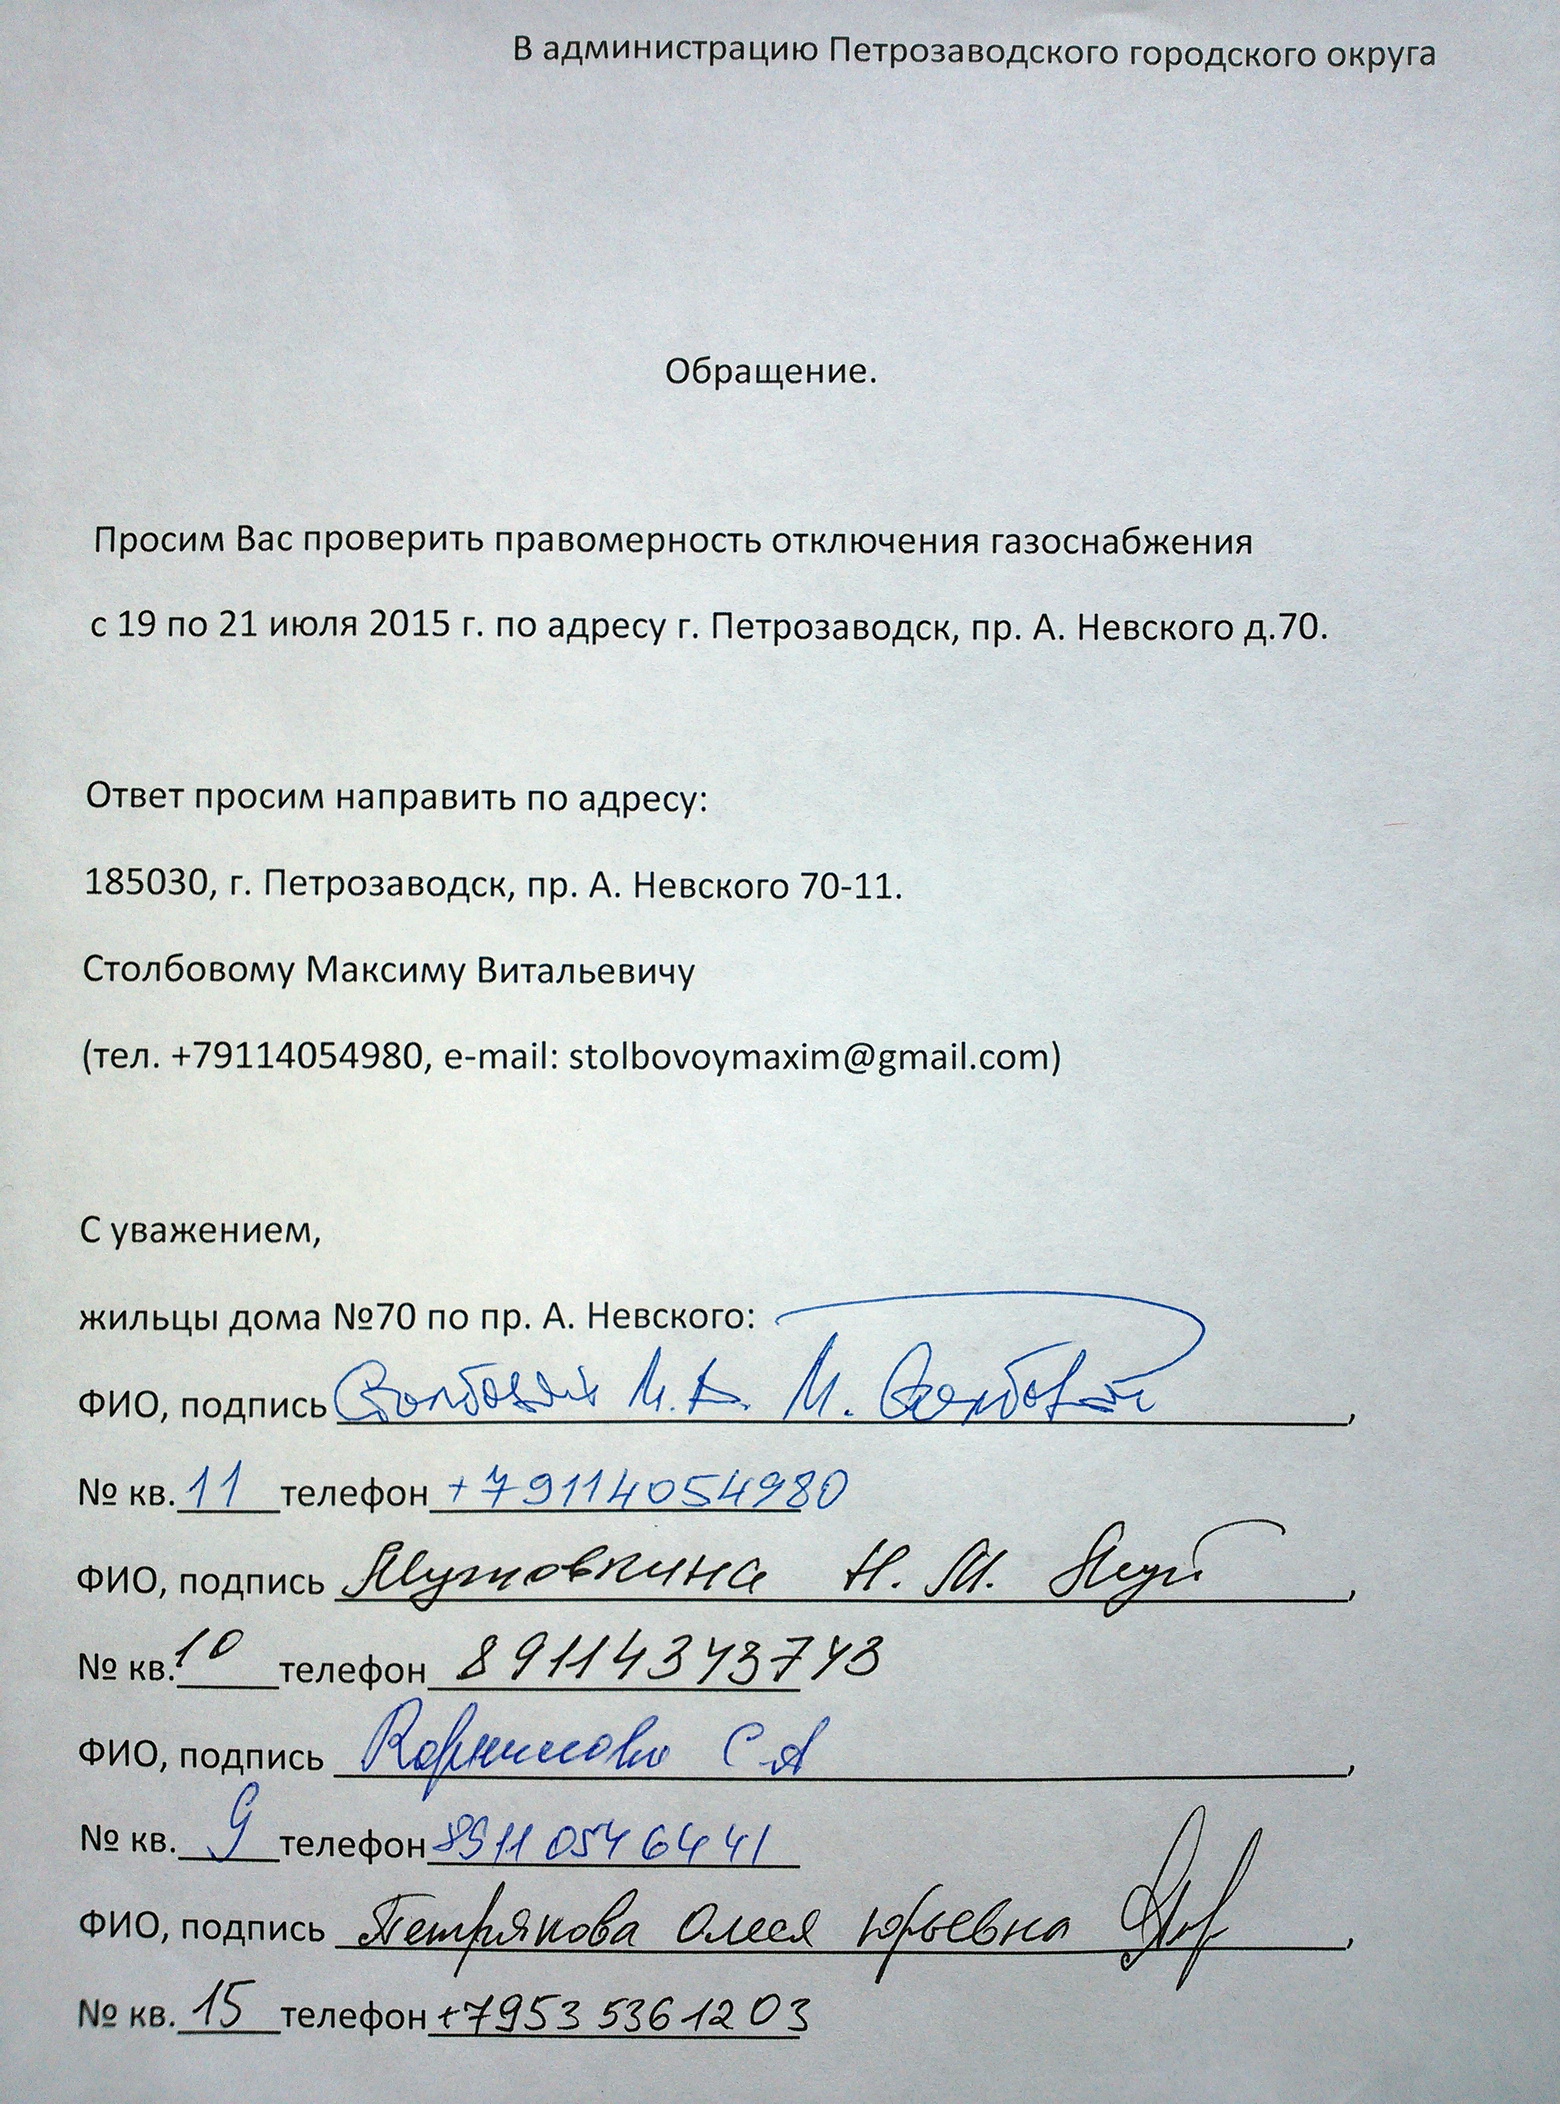 В администрацию Петрозаводского городского округа
Обращение.
Просим Вас проверить правомерность отключения газоснабжения
с 19 по 21 июля 2015 г. по адресу г. Петрозаводск, пр. А. Невского д.70.
Ответ просим направить по адресу:
185030, г. Петрозаводск, пр. А. Невского 70-11.
Столбовому Максиму Витальевичу
(тел. +79114054980, e-mail: stolbovoymaxim@gmail.com)
С уважением,
жильцы дома №70 по пр. А. Невского:
ФИО, подпись Столбовой М.В. М. Столбовой,
№ кв. 11 телефон +79114054980
ФИО, подпись Н. М.,
№ кв. 10 телефон 89114343743
ФИО, подпись Корнилова С А,
№ кв. 9 телефон 89110546441
ФИО, подпись Петрякова Олеся Юрьевна,
№ кв. 15 телефон +79535361203